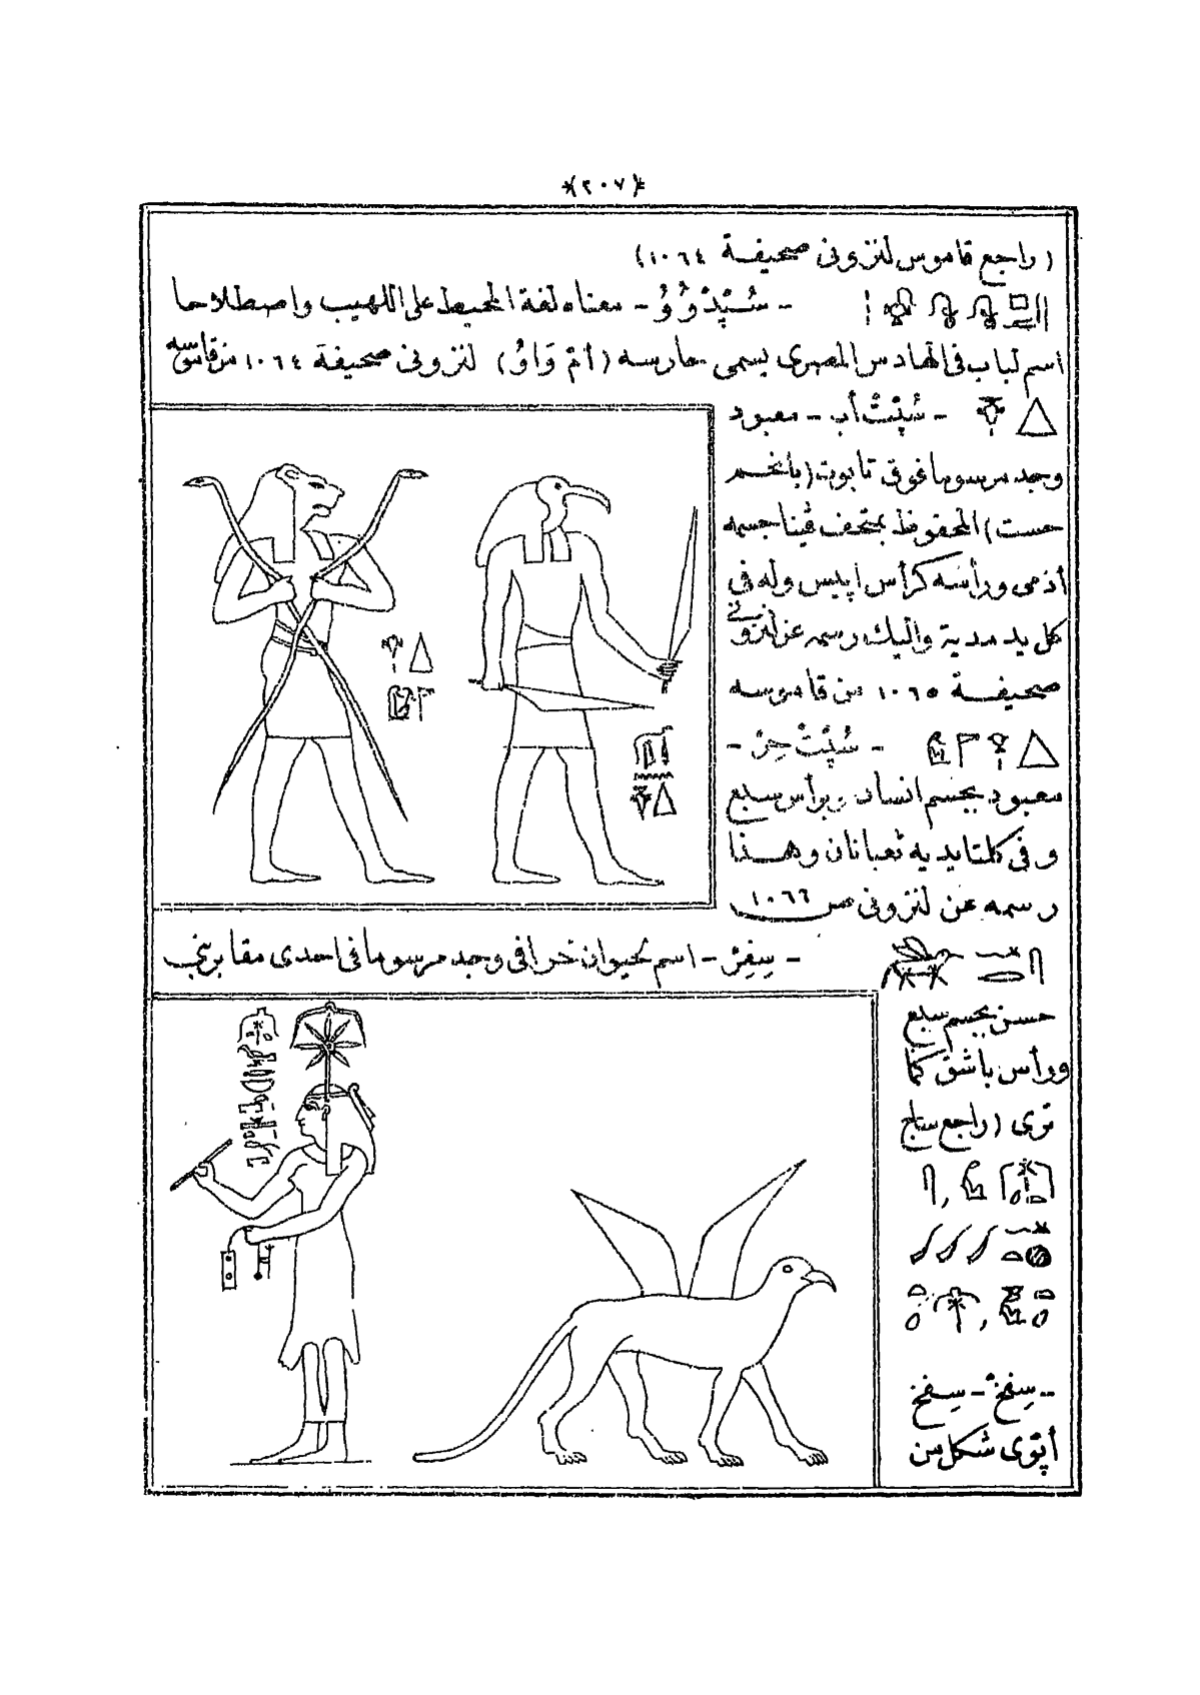 *(٢٠٧)*
(راجع قاموس لنزونى صحيفة ١٠٦٤)
- سُبْدُوُ - معناه لغة المحيط على اللهيب واصطلاحا
اسم لباب فى الهادس المصرى يسمى حارسه (أمْ وَاوُ) لنزونى صحيفة ١٠٦٤ من قاموسه
- سُپْتْ أب - معبود
وجد مرسوما فوق تابوت (بانخم
حست) المحفوظ بمتحف ڤينا جسمه
آدمى ورأسه كرأس ايبيس وله فى
كل يد مدية واليك رسمه عن لنزونى
صحيفة ١٠٦٥ من قاموسه
- سُپْتْ حِرْ -
معبود بجسم انسان وبرأس سبع
وفى كلتا يديه ثعبانان وهذا
رسمه عن لنزونى ص ١٠٦٦
- سِفِرْ - اسم لحيوان خرافى وجد مرسوما فى احدى مقابر بنى
حسن بجسم سبع
ورأس باشق كما
ترى (راجع
- سِفخْ - سِفخ
أپتوى شكل من